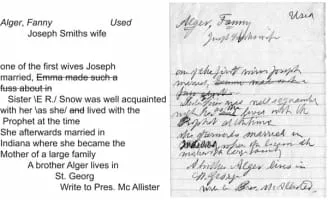 Alger, Fanny Used
Joseph Smiths wife
one of the first wives Joseph
married, Emma made such a
fuss about in
Sister \E R./ Snow was well acquainted
with her \as she/ and lived with the
Prophet at the time
She afterwards married in
Indiana where she became the
Mother of a large family
A brother Alger lives in
St. Georg
Write to Pres. Mc Allister
Alger, Fanny Used
Joseph Smiths wife
one of the first wives Joseph
married, Emma made such a
fuss about in
Sister Snow was well acquainted
with her as she and lived with the
Prophet at the time
She afterwards married in
Indiana where she became the
Mother of a large family
A brother Alger lives in
St Georg
Write to Pres. McAllister